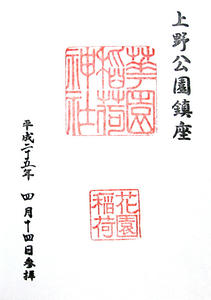 上野公園鎮座
華園
稲荷
神社
花園
稲荷
平成二十五年 四月十四日参拝